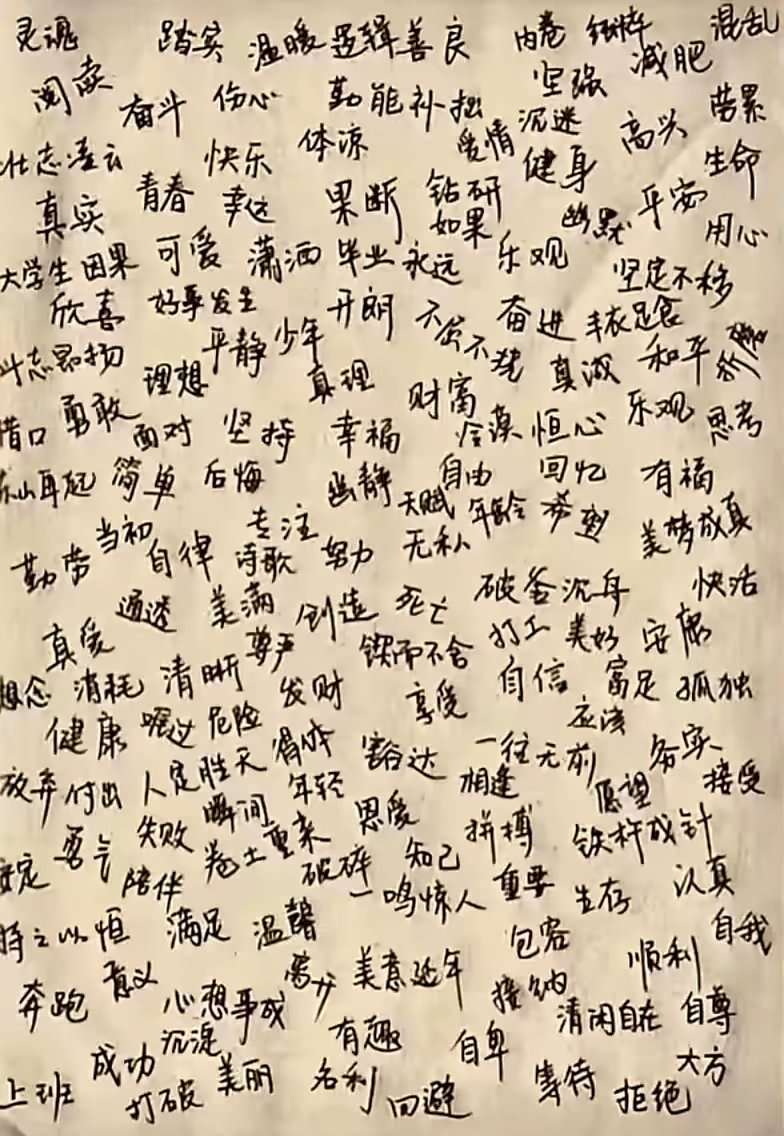 灵魂 踏实 温暖 逻辑 善良 内卷 纯粹 混乱
阅读 奋斗 伤心 勤能补拙 坚强 减肥
壮志凌云 快乐 体凉 爱情 沉迷 高兴 劳累
真实 青春 幸运 果断 钻研 健身 生命
大学生 因果 可爱 潇洒 毕业 永远 如果 乐观 幽默 平安 用心
欣喜 好事发生 开朗 不屈不挠 奋进 丰衣足食 坚定不移
斗志昂扬 理想 平静 少年 真理 财富 真诚 和平
借口 勇敢 面对 坚持 幸福 冷漠 恒心 乐观 思考
东山再起 简单 后悔 幽静 自由 回忆 有福
勤劳 当初 自律 专注 诗歌 努力 天赋 无私 年龄 美梦成真
真爱 通透 美满 尊严 创造 死亡 破釜沉舟 快活
想念 消耗 清晰 发财 锲而不舍 打工 美好 安康
健康 危险 得体 享受 自信 富足 孤独
放弃 付出 人定胜天 年轻 豁达 一往无前 应该 务实
勇气 失败 瞬间 卷土重来 恩爱 相逢 愿望 接受
陪伴 破碎 知己 拼搏 铁杵成针
持之以恒 满足 温馨 一鸣惊人 重要 生存 认真
奔跑 意义 心想事成 美意延年 包容 接纳 顺利 自我
上班 成功 沉淀 有趣 自卑 清闲自在 自尊
打破 美丽 名利 回避 等待 拒绝 大方